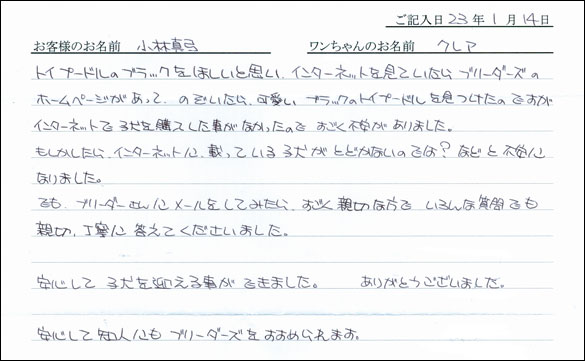 ご記入日 23年 1月 14日
お客様のお名前 小林真弓 ワンちゃんのお名前 クレア
トイプードルのブラックをほしいと思い、インターネットを見ていたら ブリーダーズの
ホームページがあって、のぞいたら、可愛い ブラックのトイプードルを見つけたのですが
インターネットで 子犬を購入した事がなかったので すごく不安がありました。
もしかしたら、インターネットに、載っている 子犬が とどかないのでは？ などと 不安に
なりました。
でも、ブリーダーさんにメールをしてみたら、すごく 親切な方で いろんな質問でも
親切、丁寧に 答えてくださいました。
安心して 子犬を迎える事が できました。 ありがとうございました。
安心して 知人にも ブリーダーズを おすすめられます。